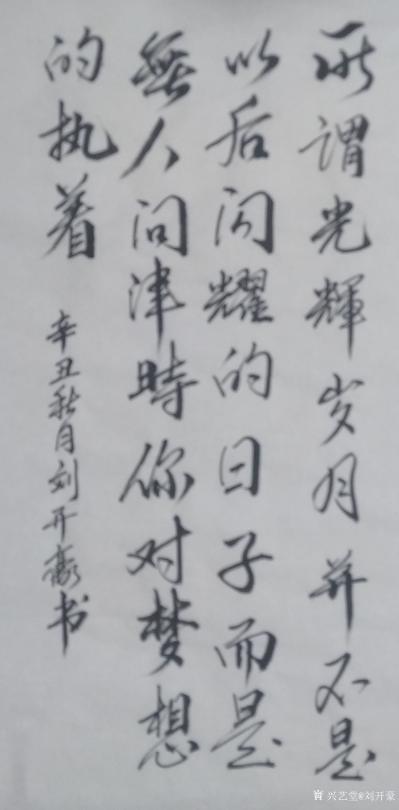 所謂光輝岁月并不是
以后闪耀的日子而是
無人问津時你对梦想
的执着
辛丑秋月刘开豪书
兴艺堂@刘开豪